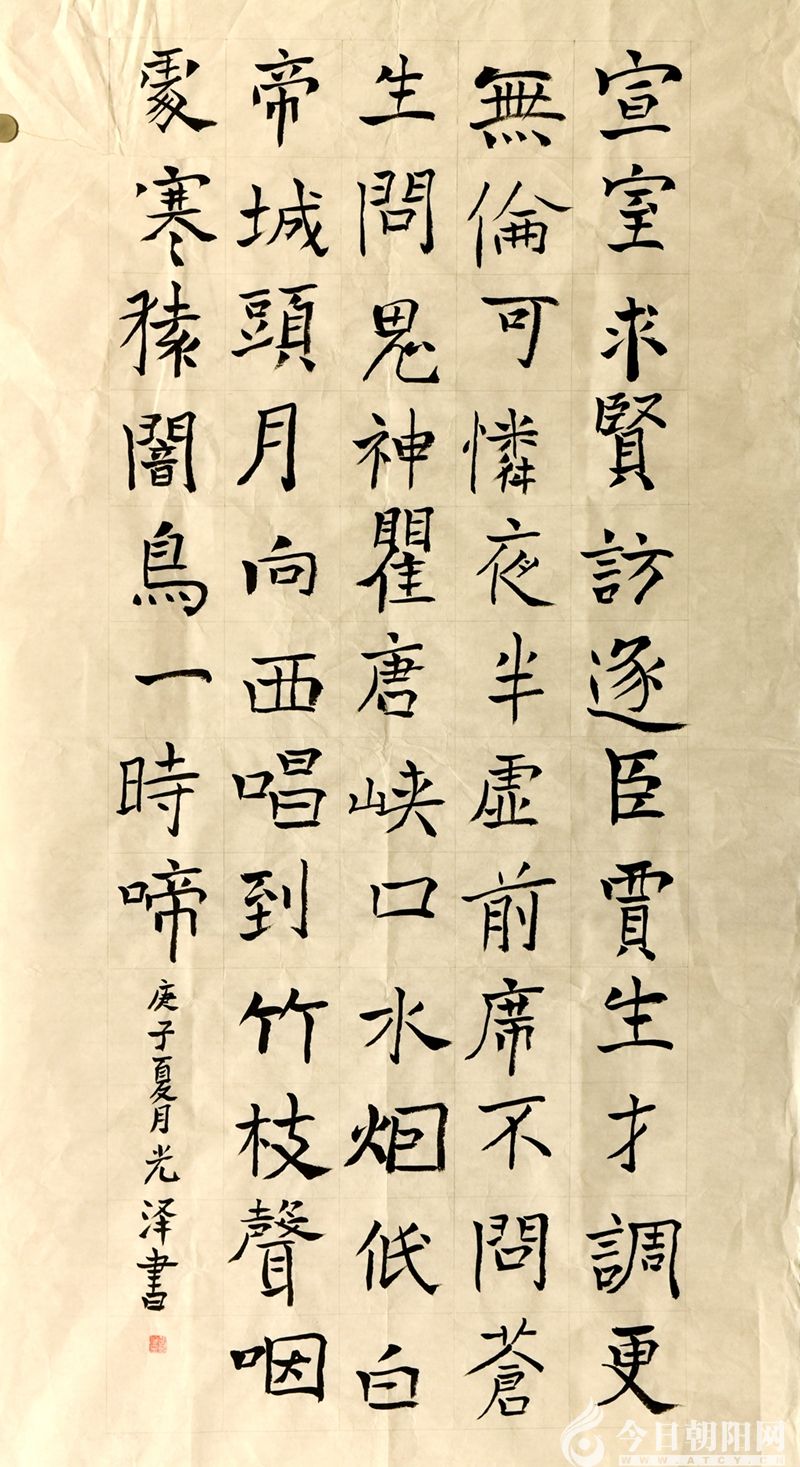 宣室求賢訪逐臣賈生才調更
無倫可憐夜半虛前席不問蒼
生問鬼神瞿唐峡口水烟低白
帝城頭月向西唱到竹枝聲咽
處寒猿闇鳥一時啼
庚子夏月光泽書
今日朝阳网
WWW.ATCY.CN